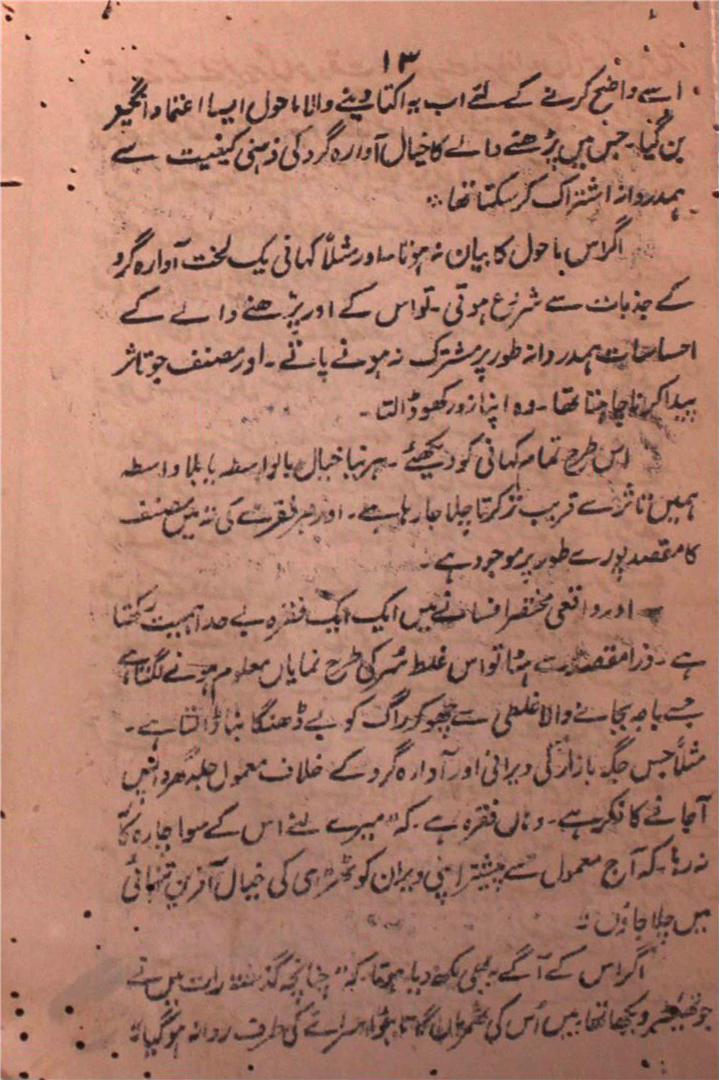 ۱۳
اسے واضح کرنے کے لئے اب یہ اکتا دینے والا ماحول ایسا اعتماد انگیز
بن گیا۔ جس میں پڑھنے والے کا خیال آوارہ گرد کی ذہنی کیفیت سے
ہمدردانہ اشتراک کر سکتا تھا۔
اگر اس ماحول کا بیان نہ ہوتا۔ اور مثلاً کہانی یک لخت آوارہ گرد
کے جذبات سے شروع ہوتی۔ تو اس کے اور پڑھنے والے کے
احساسات ہمدردانہ طور پر مشترک نہ ہونے پاتے۔ اور مصنف جو تاثر
پیدا کرنا چاہتا تھا۔ وہ اپنا زور کھو ڈالتا۔
اس طرح تمام کہانی کو دیکھئے۔ ہر نیا خیال بالواسطہ یا بلا واسطہ
ہمیں تاثر سے قریب تر کرتا چلا جا رہا ہے۔ اور ہر فقرے کی تہ میں مصنف
کا مقصد پورے طور پر موجود ہے۔
اور واقعی مختصر افسانے میں ایک ایک فقرہ بے حد اہمیت رکھتا
ہے۔ ذرا مقصد سے ہٹا تو اس غلط سُر کی طرح نمایاں معلوم ہونے لگتا ہے
جسے باجہ بجانے والا غلطی سے چھو کر راگ کو بے ڈھنگا بنا ڈالتا ہے۔
مثلاً جس جگہ بازار کی ویرانی اور آوارہ گرد کے خلاف معمول جلد گھر واپس
آجانے کا ذکر ہے۔ وہاں فقرہ ہے۔ کہ "میرے لئے اس کے سوا چارہ کار
نہ رہا۔ کہ آج معمول سے پیشتر اپنی ویران کوٹھڑی کی خیال آفریں تنہائی
میں چلا جاؤں"۔
اگر اس کے آگے یہ بھی لکھ دیا ہوتا۔ کہ "چنانچہ گذشتہ رات میں نے
جو تھیٹر دیکھا تھا میں اُس کی ٹھمریاں گاتا ہوا سرائے کی طرف روانہ ہو گیا"۔